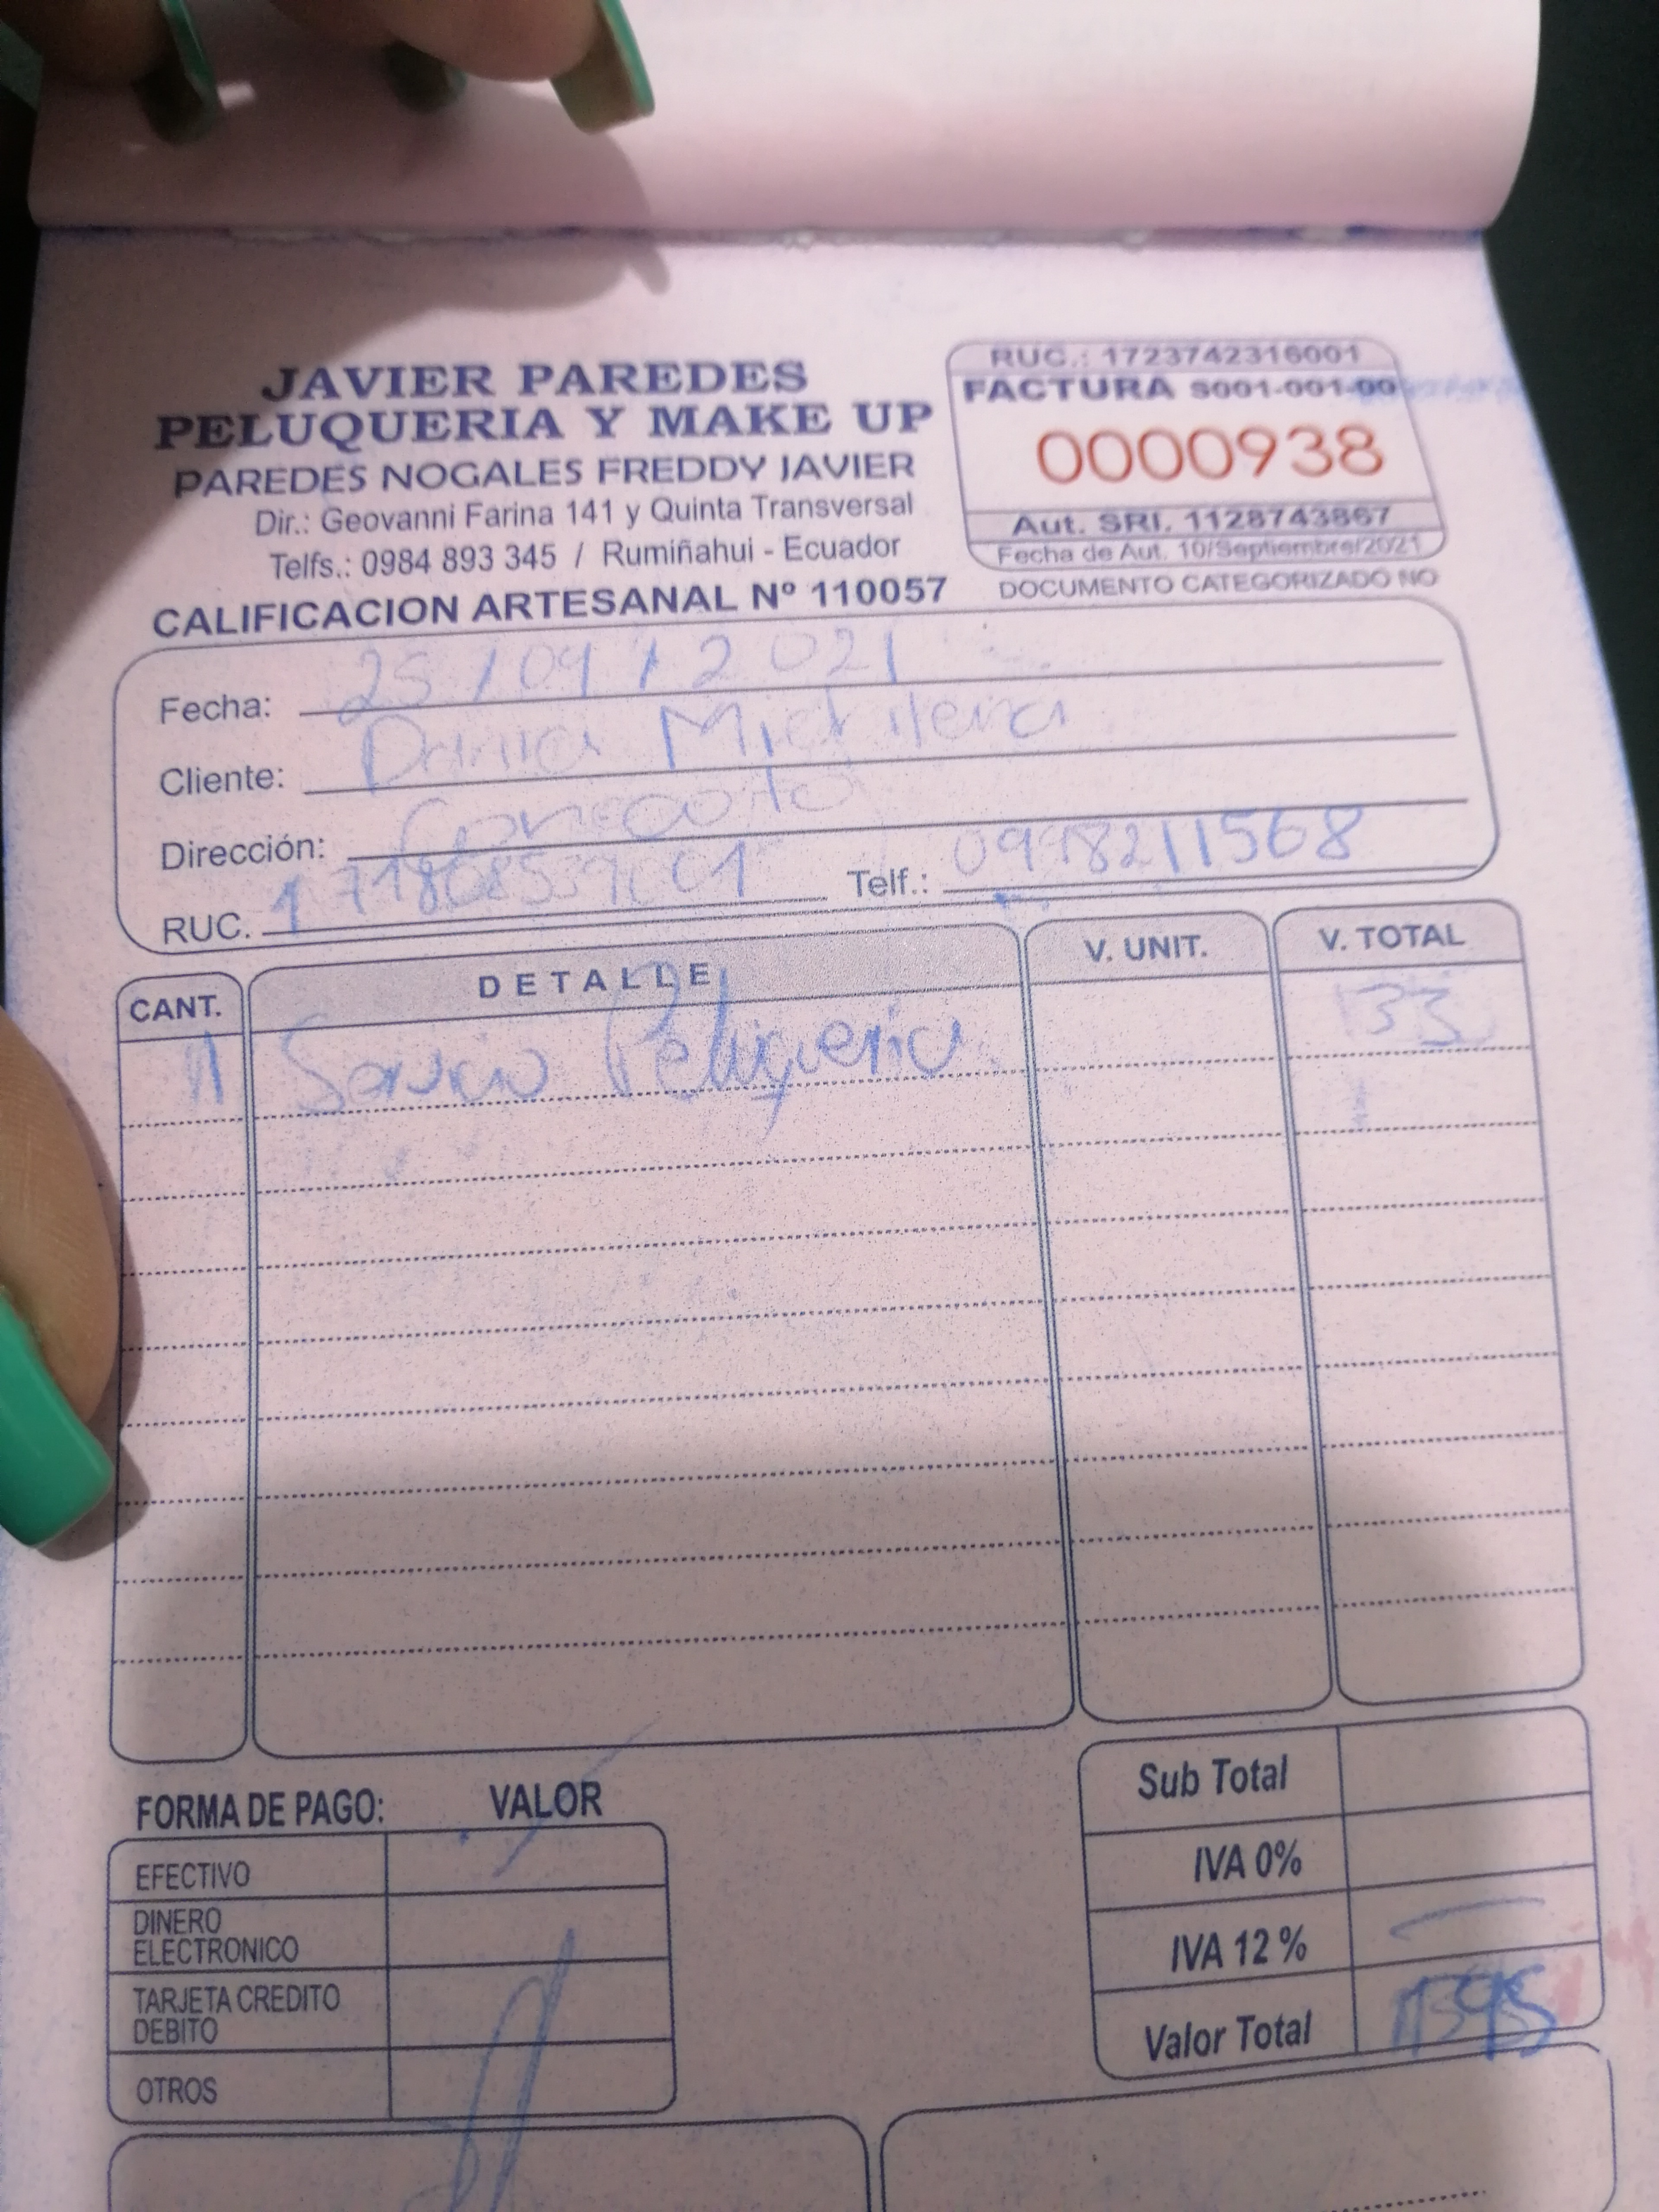 JAVIER PAREDES
PELUQUERIA Y MAKE UP
PAREDES NOGALES FREDDY JAVIER
Dir.: Geovanni Farina 141 y Quinta Transversal
Telfs.: 0984 893 345 / Rumiñahui - Ecuador
CALIFICACION ARTESANAL Nº 110057
RUC.: 1723742316001
FACTURA S001-001-00
0000938
Aut. SRI. 1128743867
Fecha de Aut. 10/Septiembre/2021
DOCUMENTO CATEGORIZADO NO
Fecha: 25/09/2021
Cliente:
Dirección: Conocoto
RUC. Telf.: 0998211568
CANT. DETALLE V. UNIT. V. TOTAL
1 Servicio Peluqueria
FORMA DE PAGO: VALOR
EFECTIVO
DINERO ELECTRONICO
TARJETA CREDITO DEBITO
OTROS
Sub Total
IVA 0%
IVA 12 %
Valor Total